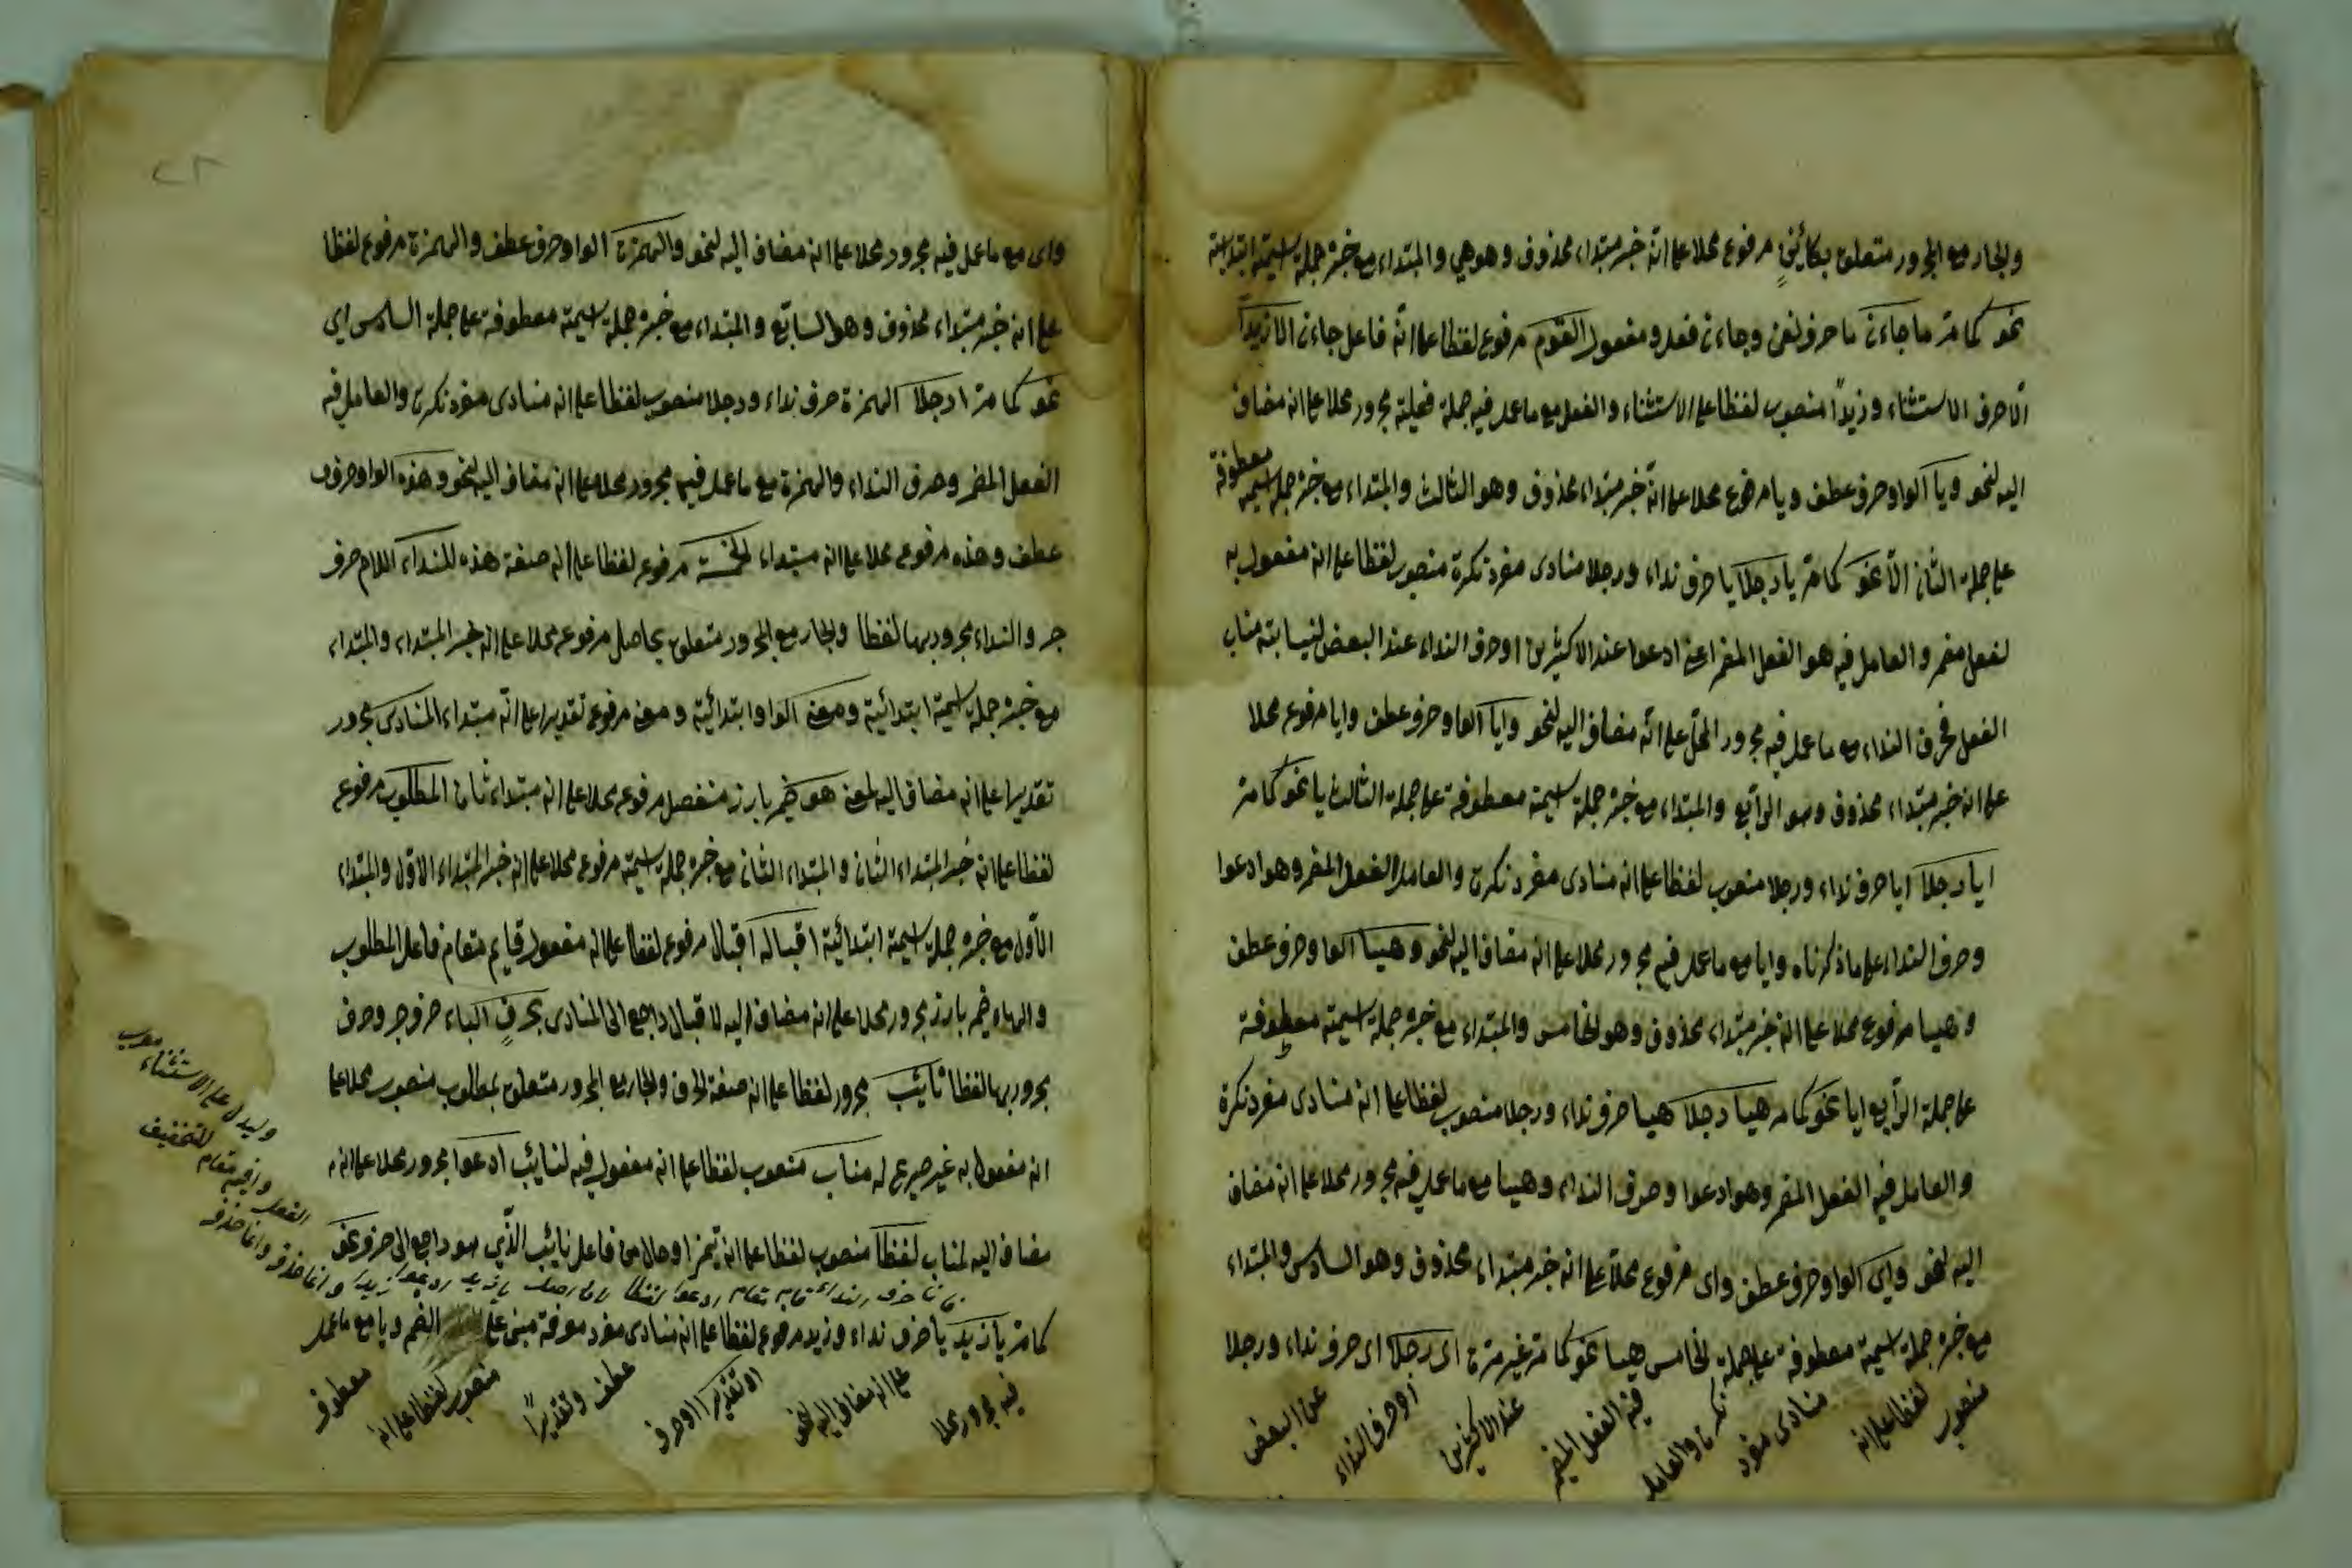 والجار مع المجرور متعلق بكائن مرفوع محلا على انه خبر مبتداء محذوف وهو هي والمبتداء مع خبره جملة اسمية ابتدائية
نحو كما مر ما جاءنى ما حرف نفى وجاءنى فعل ومفعول القوم مرفوع لفظا على انه فاعل جاءنى الا زيدا
الا حرف الاستثناء وزيدًا منصوب لفظا على الاستثناء والفعل مع ما عمل فيه جملة فعلية مجرور محلا على انه مضاف
اليه لنحو ويا الواو حرف عطف ويا مرفوع محلا على انه خبر مبتداء محذوف وهو الثالث والمبتداء مع خبره جملة اسمية معطوفة
على جملة الثانى الا نحو كما مر يا رجلا يا حرف نداء ورجلا منادى مفرد نكرة منصوب لفظا على انه مفعول به
لفعل مضمر والعامل فيه هو الفعل المضمر اعنى ادعوا عند الاكثرين او حرف النداء عند البعض لنيابته مناب
الفعل فحرف النداء مع ما عمل فيه مجرور المحل على انه مضاف اليه لنحو وايا الواو حرف عطف وايا مرفوع محلا
على انه خبر مبتداء محذوف وهو الرابع والمبتداء مع خبره جملة اسمية معطوفة على جملة الثالث يا نحو كما مر
ايا رجلا ايا حرف نداء ورجلا منصوب لفظا على انه منادى مفرد نكرة والعامل الفعل المضمر وهو ادعوا
وحرف النداء على ما ذكرناه وايا مع ما عمل فيه مجرور محلا على انه مضاف اليه لنحو وهيا الواو حرف عطف
وهيا مرفوع محلا على انه خبر مبتداء محذوف وهو الخامس والمبتداء مع خبره جملة اسمية معطوفة
على جملة الرابع ايا نحو كما مر هيا رجلا هيا حرف نداء ورجلا منصوب لفظا على انه منادى مفرد نكرة
والعامل فيه الفعل المضمر وهو ادعوا وحرف النداء وهيا مع ما عمل فيه مجرور محلا على انه مضاف
اليه لنحو واى الواو حرف عطف واى مرفوع محلا على انه خبر مبتداء محذوف وهو السادس والمبتداء
مع خبره جملة اسمية معطوفة على جملة الخامس هيا نحو كما مر غير مرة اى رجلا اى حرف نداء ورجلا
منصوب لفظا على انه منادى مفرد نكرة والعامل فيه الفعل المضمر عند الاكثرين او حرف النداء عن البعض
٢٨
واى مع ما عمل فيه مجرور محلا على انه مضاف اليه لنحو والهمزة الواو حرف عطف والهمزة مرفوع لفظا
على انه خبر مبتداء محذوف وهو السابع والمبتداء مع خبره جملة اسمية معطوفة على جملة السادس اى
نحو كما مر ا رجلا الهمزة حرف نداء ورجلا منصوب لفظا على انه منادى مفرد نكرة والعامل فيه
الفعل المضمر وحرف النداء والهمزة مع ما عمل فيه مجرور محلا على انه مضاف اليه لنحو وهذه الواو حرف
عطف وهذه مرفوع محلا على انه مبتداء الخمسة مرفوع لفظا على انه صفة هذه للنداء اللام حرف
جر والنداء مجرور بها لفظا والجار مع المجرور متعلق بحاصل مرفوع محلا على انه خبر المبتداء والمبتداء
مع خبره جملة اسمية ابتدائية ومعنى الواو ابتدائية ومعنى مرفوع تقديرا على انه مبتداء المنادى مجرور
تقديرا على انه مضاف اليه لمعنى هو ضمير بارز منفصل مرفوع محلا على انه مبتداء ثان المطلوب مرفوع
لفظا على انه خبر المبتداء الثانى والمبتداء الثانى مع خبره جملة اسمية مرفوع محلا على انه خبر المبتداء الاول والمبتداء
الاول مع خبره جملة اسمية ابتدائية اقباله اقبال مرفوع لفظا على انه مفعول قايم مقام فاعل المطلوب
والهاء ضمير بارز مجرور محلا على انه مضاف اليه لاقبال راجع الى المنادى بحرف الباء حرف جر وحرف
مجرور بها لفظا نائب مجرور لفظا على انه صفة لحرف والجار مع المجرور متعلق بمطلوب منصوب محلا على
انه مفعول به غير صريح له مناب منصوب لفظا على انه مفعول فيه لنائب ادعوا مجرور محلا على انه
مضاف اليه لمناب لفظا منصوب لفظا على انه تميز او حال من فاعل نائب الذى هو راجع الى حرف نحو
كما مر يا زيد يا حرف نداء وزيد مرفوع لفظا على انه منادى مفرد معرفة مبنى على الضم ويا مع ما عمل
فيه مجرور محلا على انه مضاف اليه لنحو او تقديرا او حرف عطف وتقديرًا منصوب لفظا على انه معطوف
حرف النداء قايم مقام ادعوا لفظا اصل يا زيد ادعوا زيدا وانما حذف
الفعل واقيم مقام وانما حذف للتخفيف
وليدل على الاستثناء